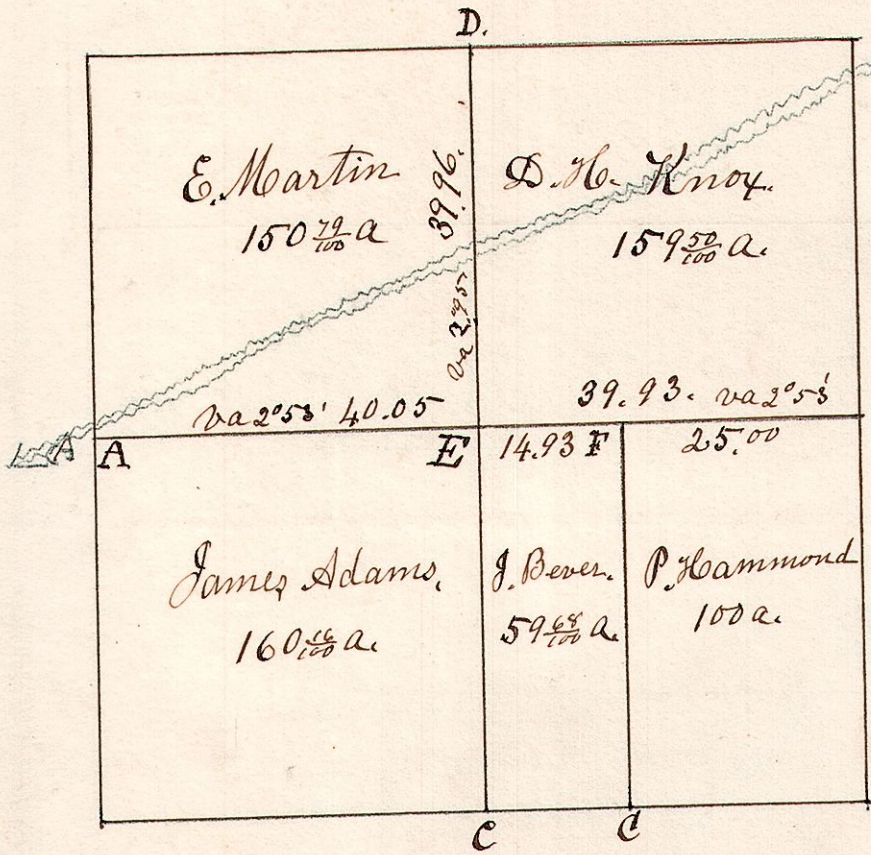 D.
E. Martin
150 79/100 a
39.96.
va 2°95'
D. H. Knox.
159 50/100 a.
va 2°53' 40.05
39.93. va 2°53'
A
A
E
14.93 F
25.00
James Adams.
160 16/100 a.
J. Bever.
59 68/100 a.
P. Hammond
100 a.
C
C